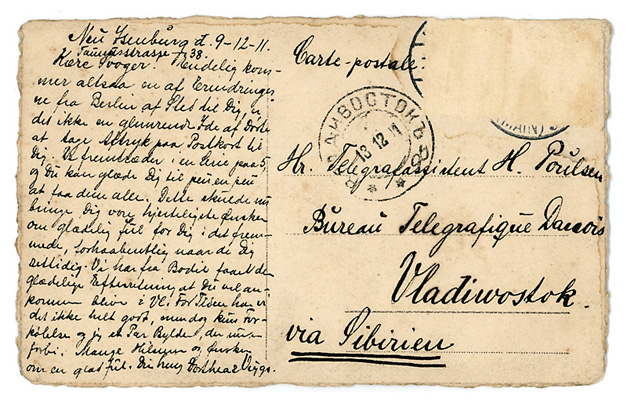 Neu Isenburg d. 9-12-11.
Taunusstrasse 38.
Kære Svoger! Endelig kom-
mer altsaa en af Erindringer-
ne fra Berlin af Sted til Dig, er
det ikke en glimrende Ide af Dorte
at tage Aftryk paa Postkort til
Dig. Vi fremtræder i en Serie paa 5
og Du kan glæde Dig til peu en peu
at faa dem alle. Dette skulde nu
bringe Dig vore hjerteligste Ønsker
om glædelig Jul for Dig i det frem-
mede, forhaabentlig naar de Dig
rettidig. Vi har fra Bodil faaet den
glædelige Efterretning at Du vel an-
kommen til Vl. For Tiden har vi
det ikke helt godt, men dog kun For-
kølelse og et Par Bylder, der
forbi. Mange Hilsner og Ønsker
om en glad Jul. Din heng. Dorthea & Viggo.
Carte-postale
ВЛАДИВОСТОКЪ
13 12 11
(MAIN)
Hr. Telegrafassistent H. Poulsen
Bureau Telegrafique Danois
Vladiwostok.
via Sibirien